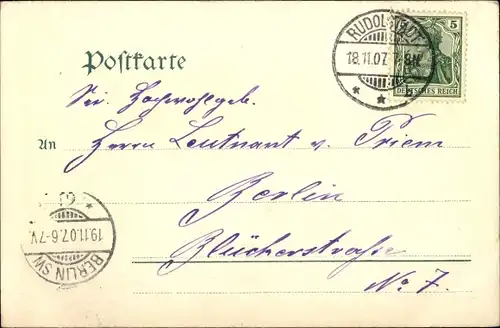 Postkarte
RUDOLSTADT
18.11.07. 7-8N.
* b *
5
DEUTSCHES REICH
Sei. Hochwohlgeb.
An Herrn Leutnant v. Priem
Berlin
Blücherstraße
No. 7.
BERLIN SW
19.11.07. 6-7V.